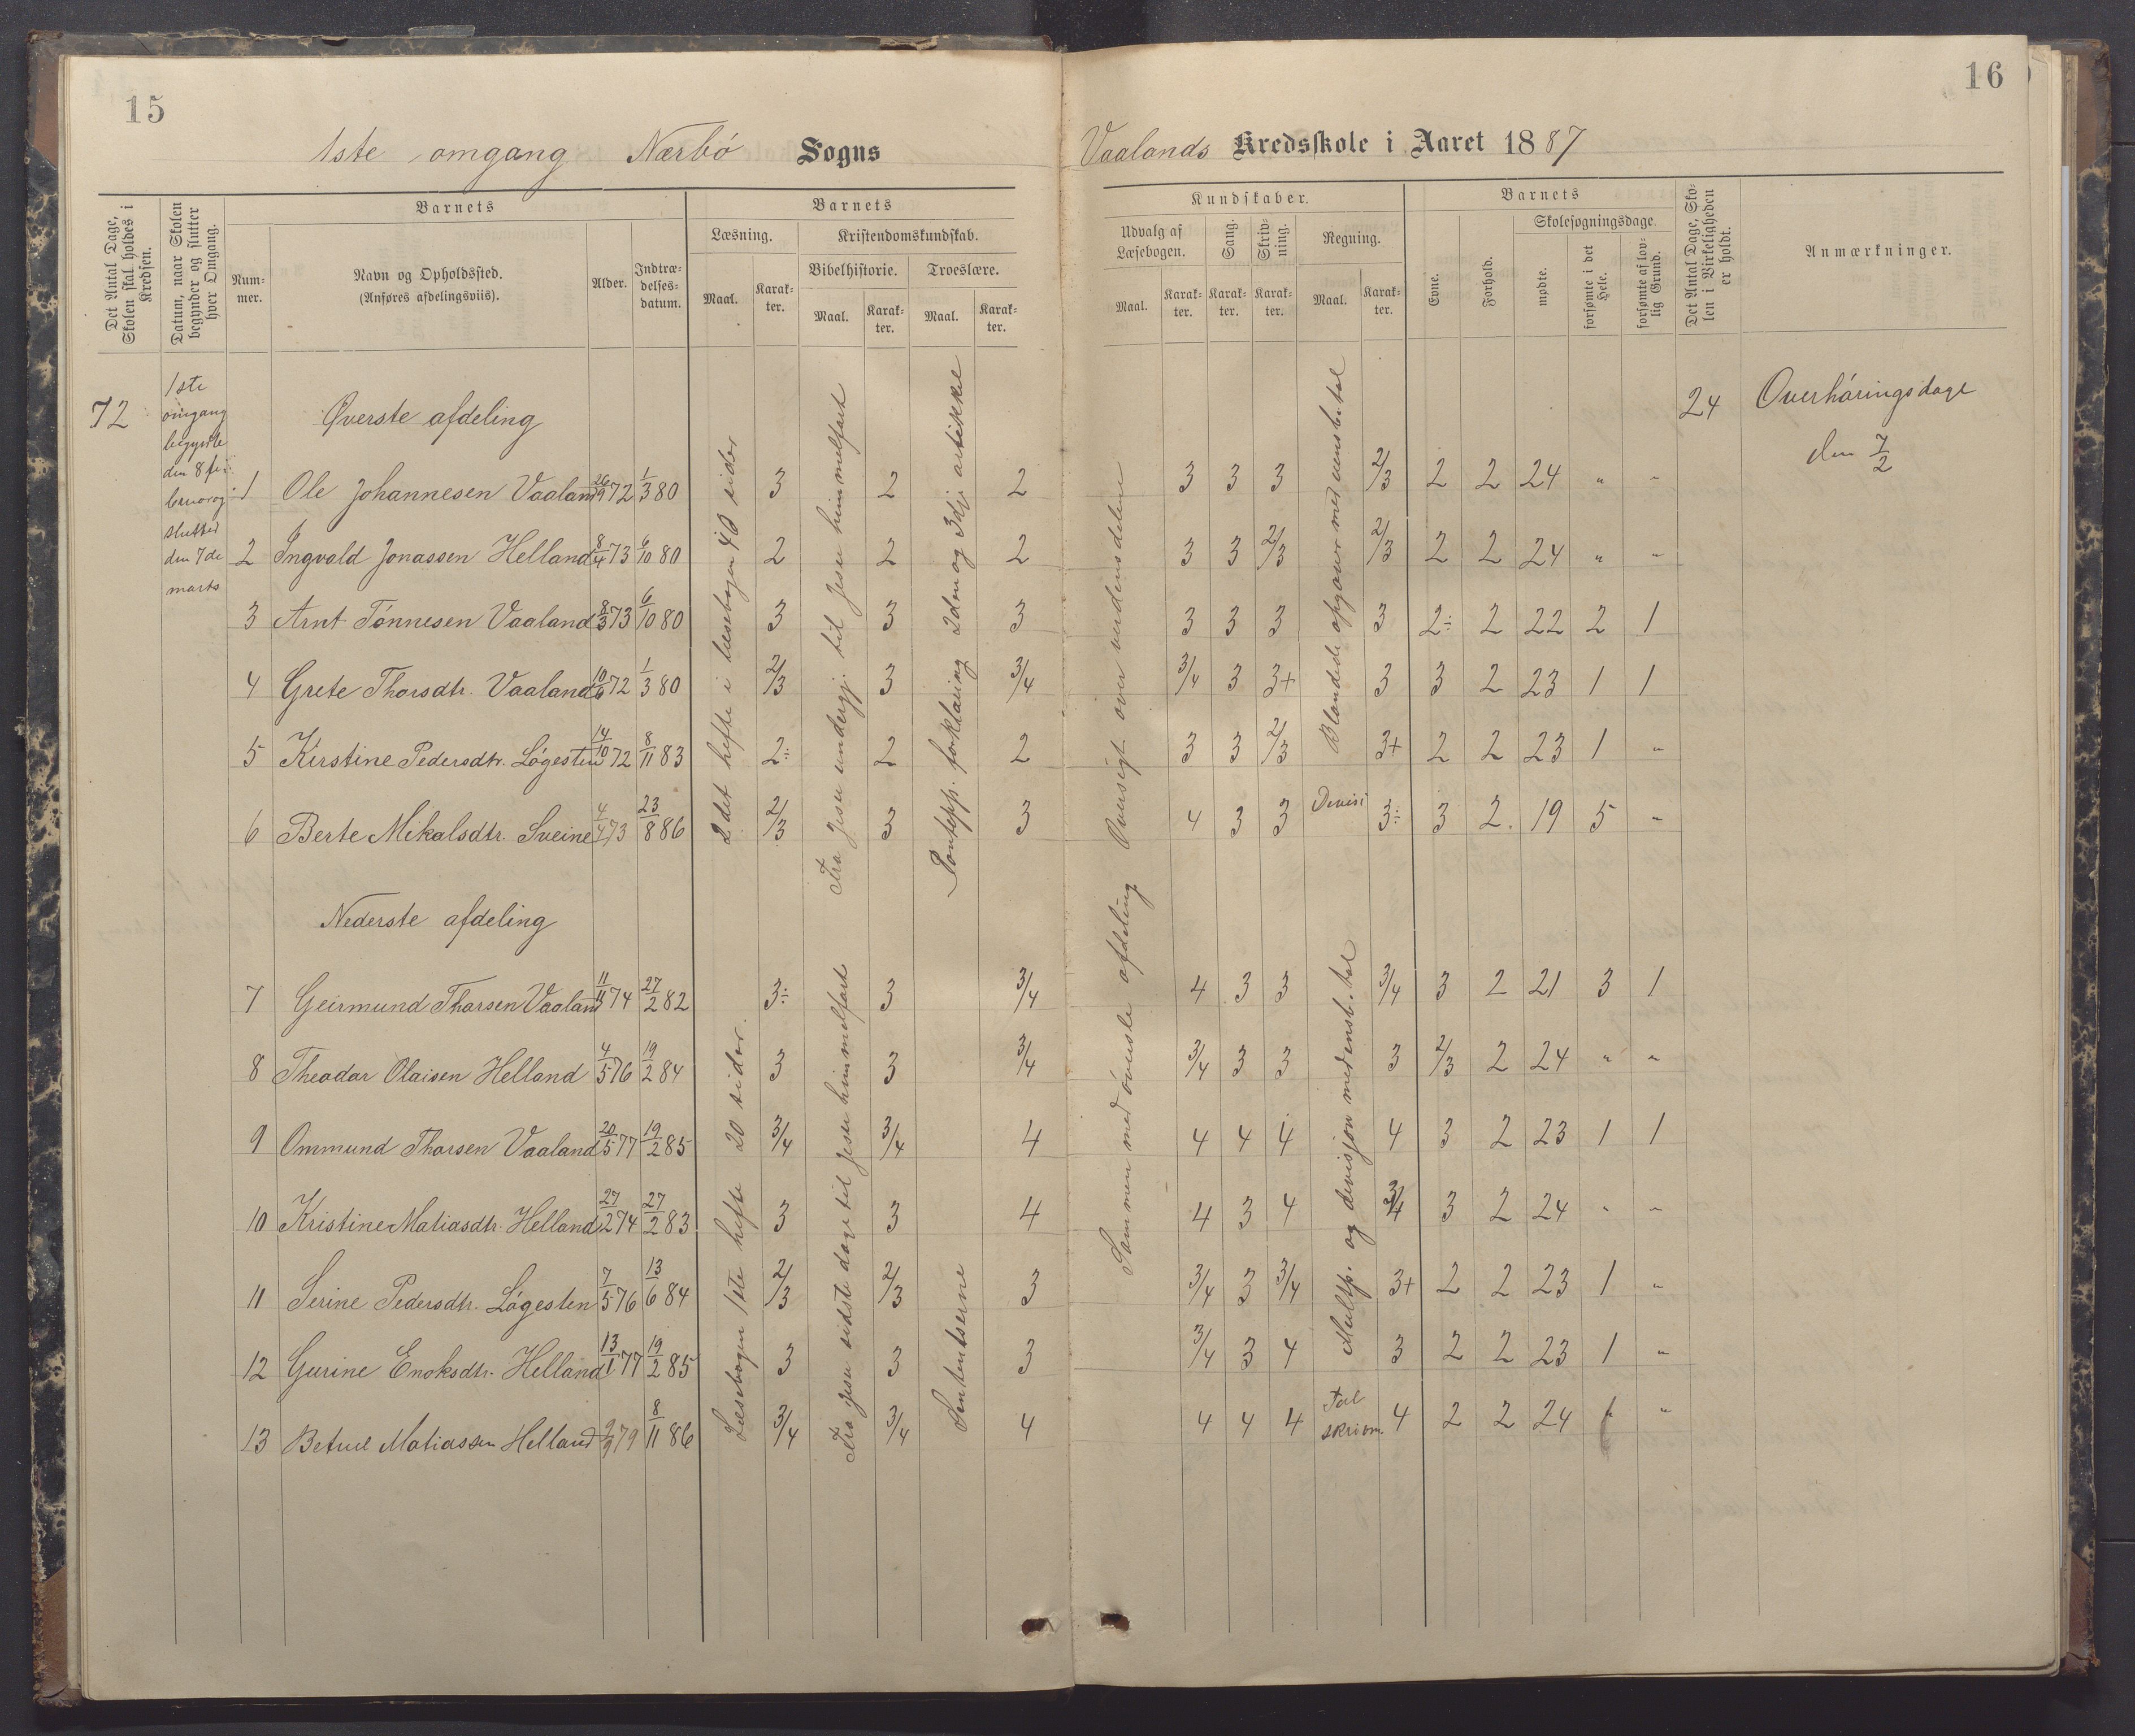 15
16
1ste omgang Nærbö Sogns
Vaalands Kredsskole i Aaret 1887
Det Antal Dage, Skolen skal holdes i Kredsen.
Datum, naar Skolen begynder og slutter hver Omgang.
Barnets
Nummer.
Navn og Opholdssted. (Anføres afdelingsviis).
Alder.
Indtrædelsesdatum.
Barnets
Læsning.
Maal.
Karakter.
Kristendomskundskab.
Bibelhistorie.
Maal.
Karakter.
Troeslære.
Maal.
Karakter.
Kundskaber.
Udvalg af Læsebogen.
Maal.
Karakter.
Sang.
Karakter.
Skrivning.
Karakter.
Regning.
Maal.
Karakter.
Barnets
Evne.
Forhold.
Skolesøgningsdage.
mødte.
forsømte i det Hele.
forsømte af lovlig Grund.
Det Antal Dage, Skolen i Virkeligheden er holdt.
Anmærkninger.
72
1ste
omgang
begyndte
den 8 fe-
bruar og
sluttet
den 7de
marts
Øverste afdeling
24 Overhøringsdage
den 7/2
1 Ole Johannesen Vaaland 26/9 72 1/3 80 3 2 2 3 3 3 2/3 2 2 24 " "
2 Ingvald Jonassen Helland 8/4 73 6/10 80 2 2 2 3 3 2/3 2/3 2 2 24 " "
3 Arnt Tönnesen Vaaland 8/3 73 6/10 80 3 3 3 3 3 3 3 2÷ 2 22 2 1
4 Grete Thorsdtr. Vaaland 10/6 72 1/3 80 2/3 3 3/4 3/4 3 3+ 3 3 2 23 1 1
5 Kirstine Pedersdtr. Lögesten 14/10 72 8/11 83 2÷ 2 2 3 3 2/3 3+ 2 2 23 1 "
6 Berte Mikalsdtr. Sveine 4/7 73 23/8 86 2/3 3 3 4 3 3 Devisi 3÷ 3 2 19 5 "
2det hefte i læsebogen 40 sider
Fra Jesu undergj. til Jesu himmelfart
Pontopp. forklaring 2den og 3dje artikkel
Oversigt over verdensdelene
Blandede opgaver med uensbe.tal
Nederste afdeling
7 Geirmund Thorsen Vaaland 11/3 74 27/2 82 3÷ 3 3/4 4 3 3 3/4 3 2 21 3 1
8 Theodor Olaisen Helland 4/5 76 19/2 84 3 3 3/4 3/4 3 3 3 2/3 2 24 " "
9 Ommund Thorsen Vaaland 20/5 77 19/2 85 3/4 3/4 4 4 4 4 4 3 2 23 1 1
10 Kristine Matiasdtr. Helland 27/2 74 27/2 83 3 3 4 4 3 4 3/4 3 2 24 " "
11 Serine Pedersdtr. Lögesten 7/5 76 13/6 84 2/3 2/3 3 3/4 3 3/4 3+ 2 2 23 1 "
12 Gurine Enoksdtr. Helland 13/1 77 19/2 85 3 3 3 3/4 3 4 3 2 2 23 1 "
13 Betuel Matiassen Helland 9/9 79 8/11 86 3/4 3/4 4 4 4 4 Tal skrivn. 4 2 2 24 "
Læsebogen 1ste hefte 20 sider.
Fra Jesu sidste dage til Jesu himmelfart
Sententserne
Sammen med överste afdeling
Multp. og devisjon med ensb. tal